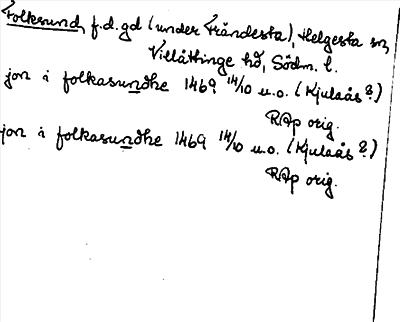 Folksund, f.d. gd (under Frändesta), Helgesta sn,
Villåttinge hd, Södm. l.
jon i folkasundhe 1469 14/10 u.o. (Kjulaås?)
RAp orig.
jon i folkasundhe 1469 14/10 u.o. (Kjulaås?)
RAp orig.